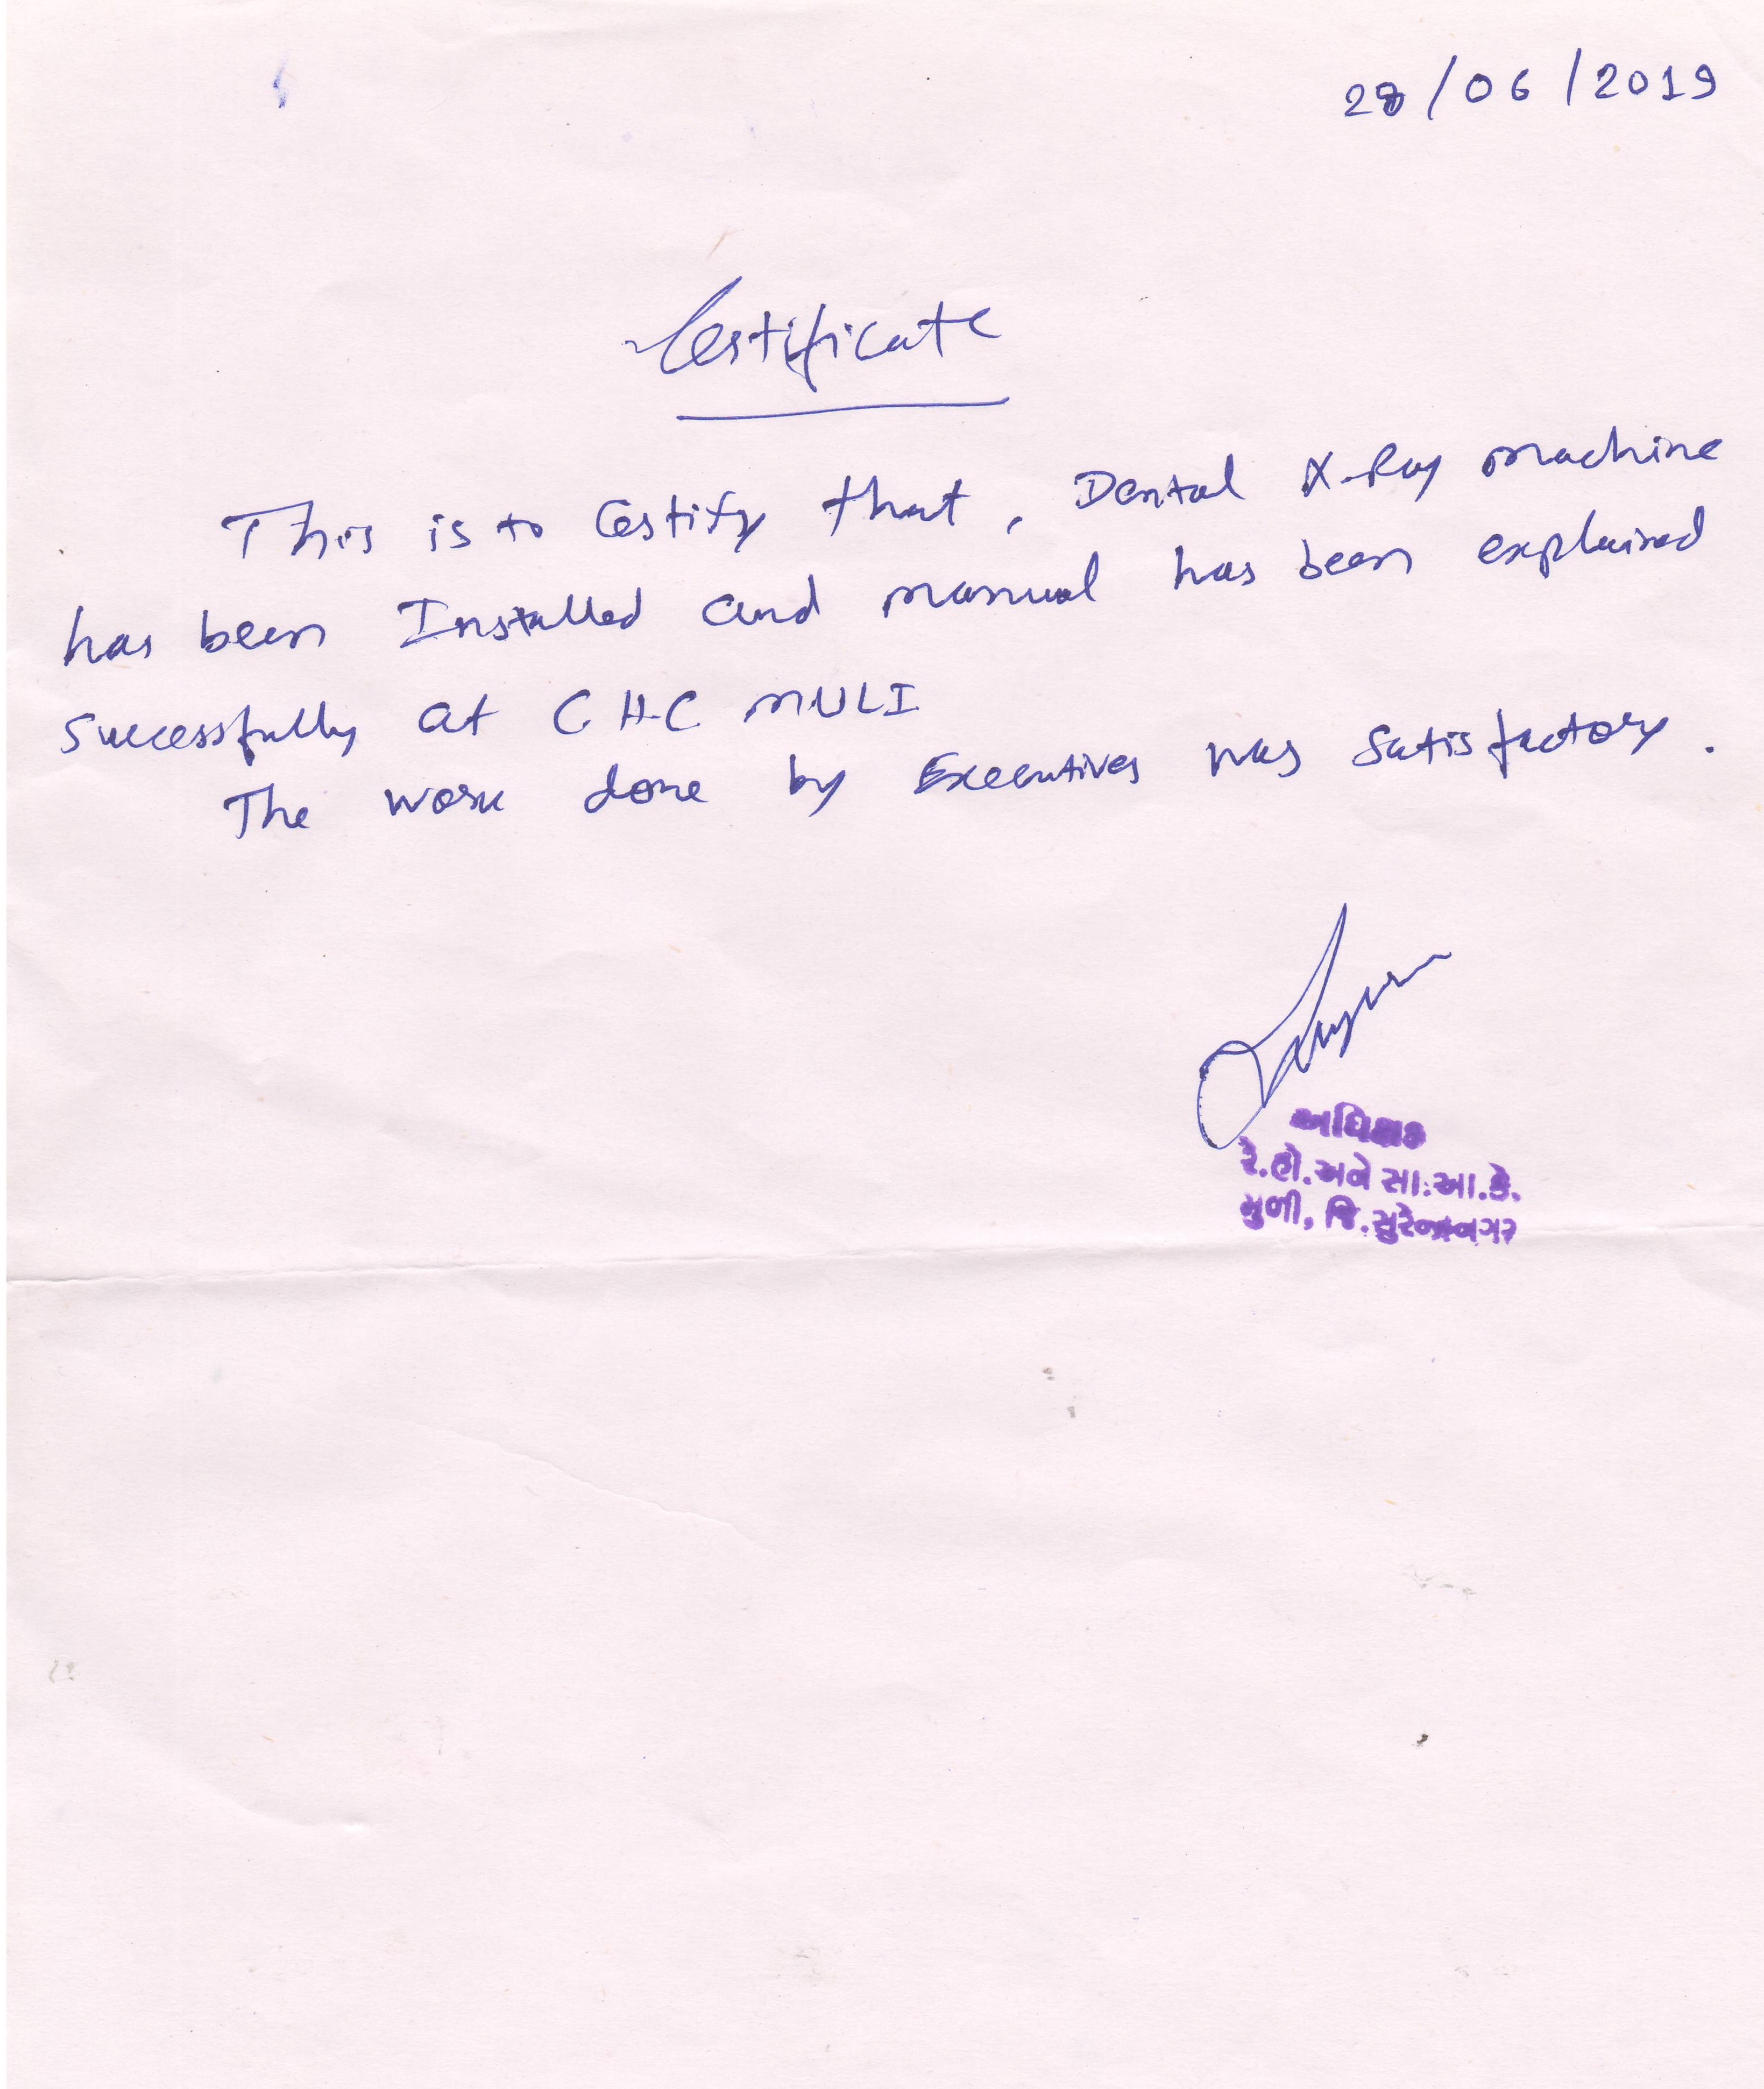 28/06/2019
Certificate
This is to Certify that, Dental X-Ray machine
has been Installed and manual has been explained
Successfully at C.H.C MULI
The work done by Executives was Satisfactory.
અધિક્ષક
રે.હો.અને સા.આ.કે.
મુળી, જિ.સુરેન્દ્રનગર